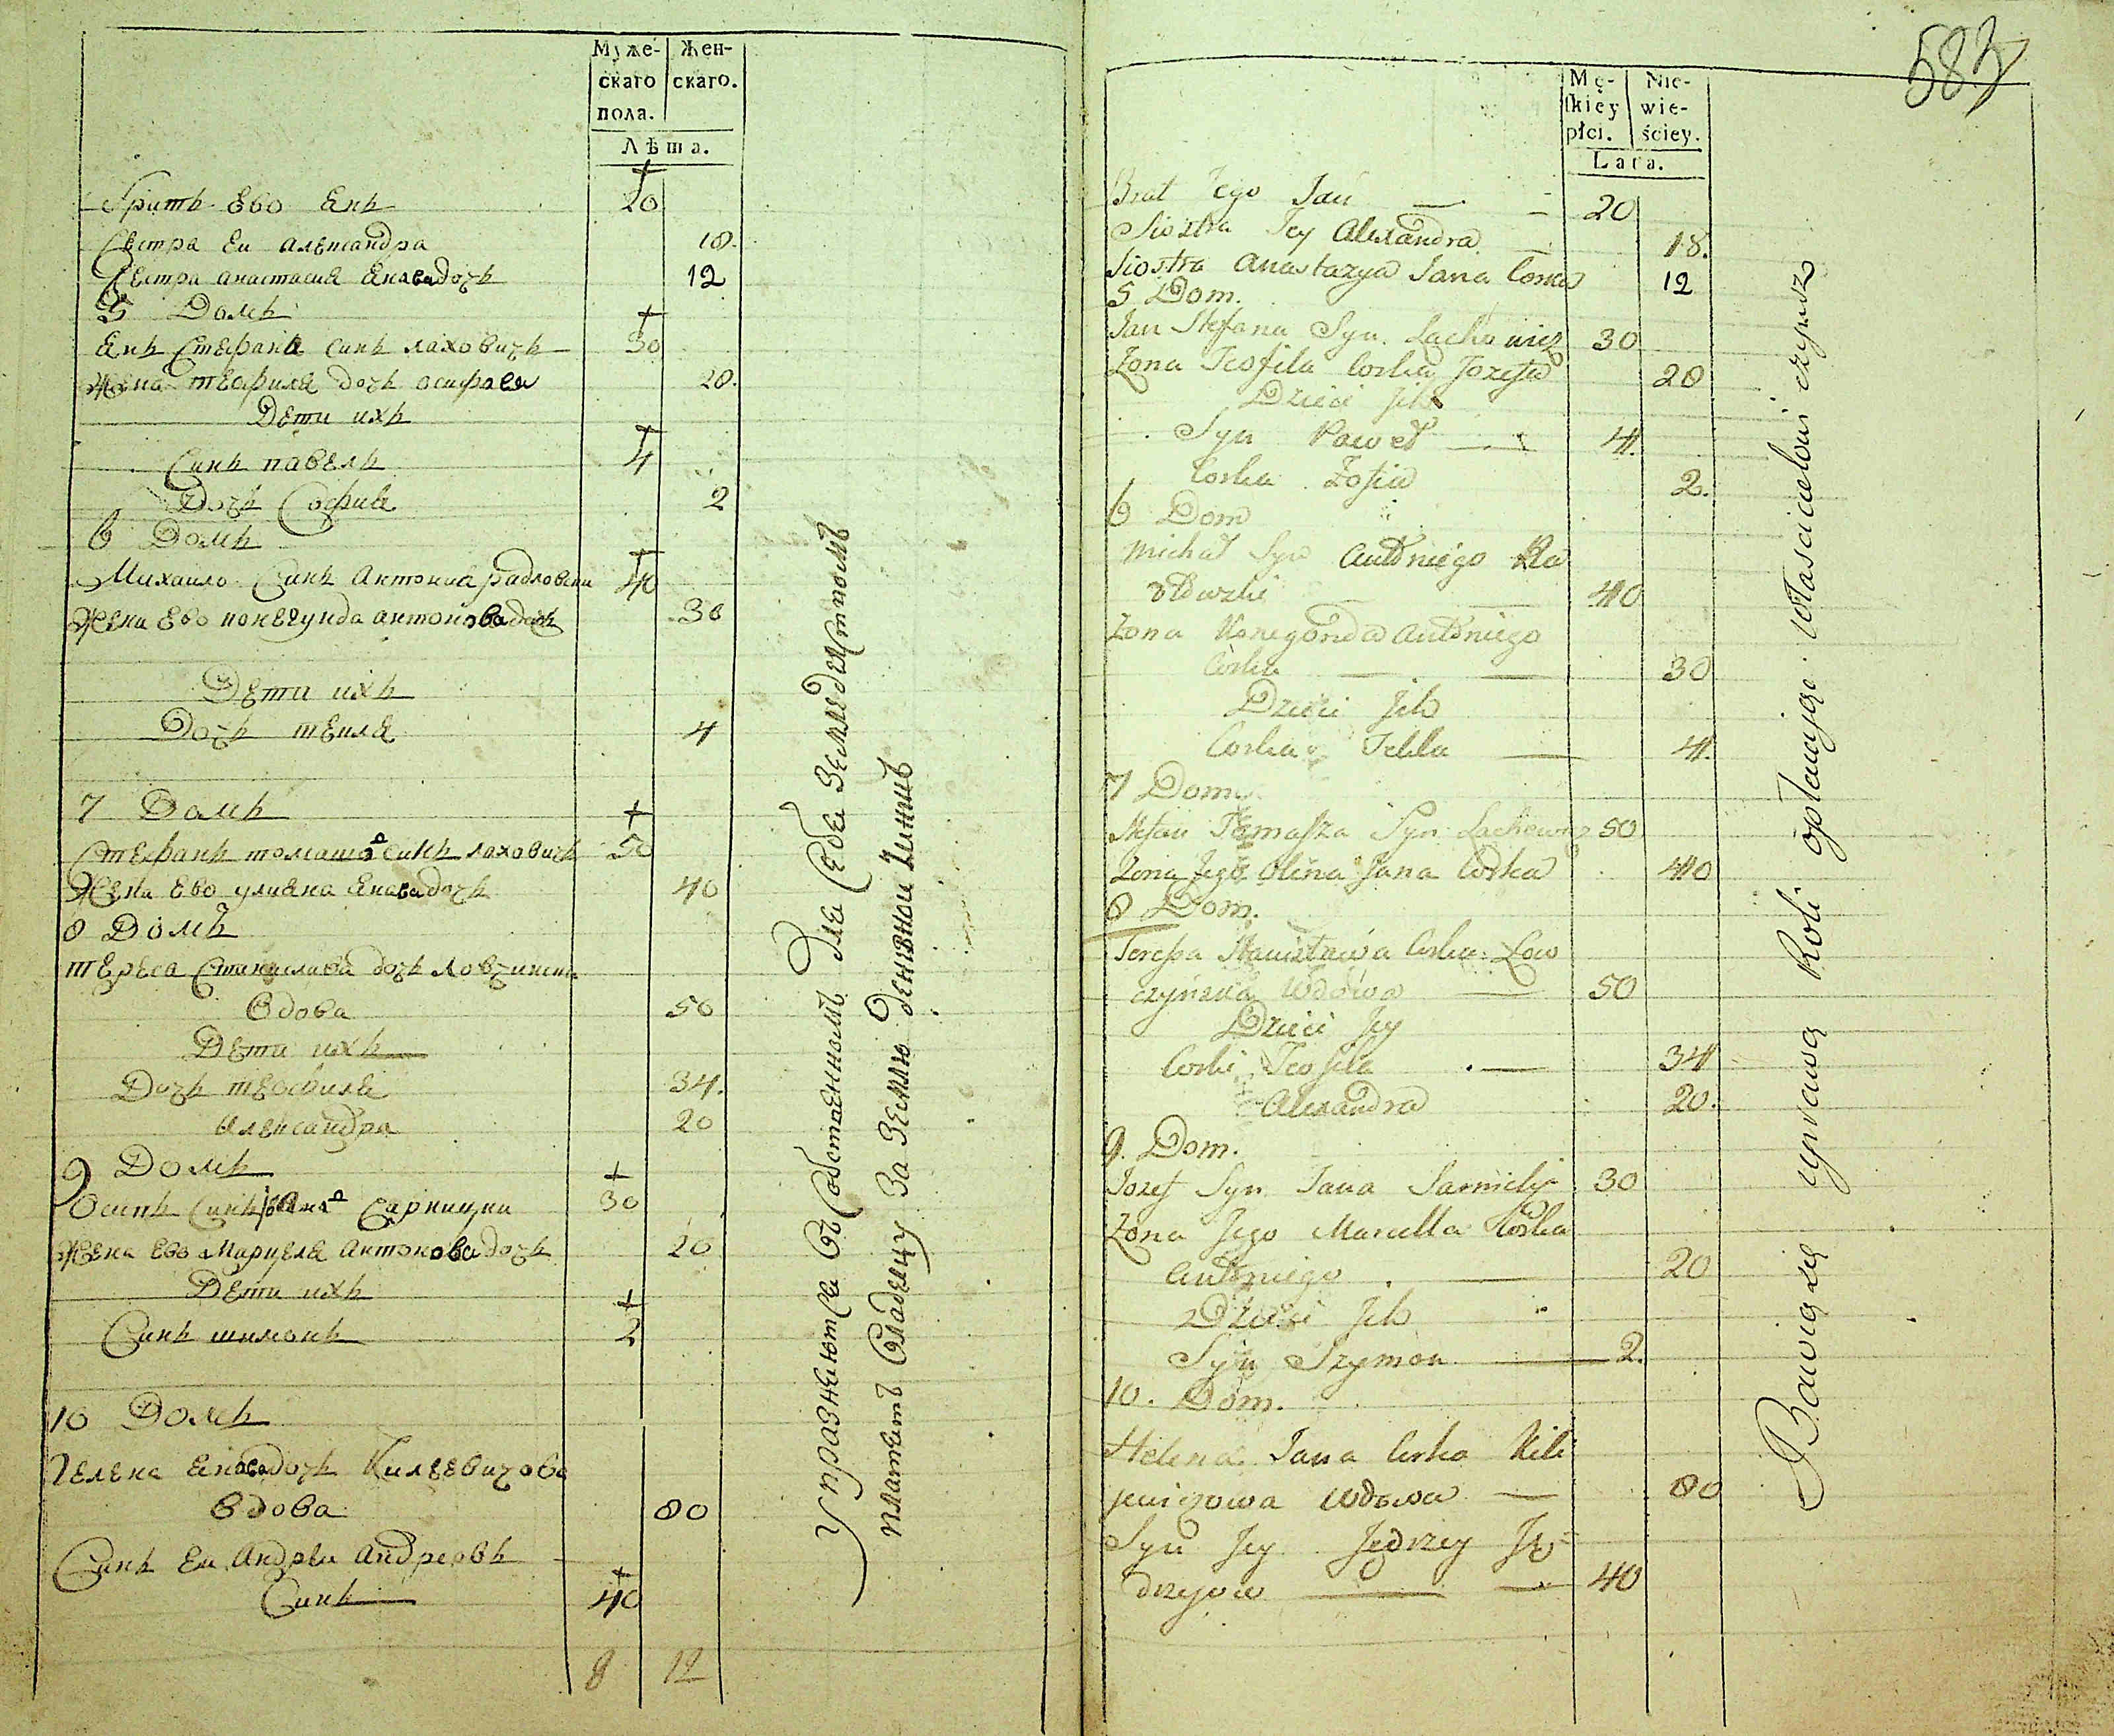 Муже- Жен-
скаго скаго.
пола.
Лѣта.
Братъ Ево Янъ 20
Сестра Еи александра 18.
Сестра анастасия Янова дочъ 12
5 Домъ
Янъ Стефана синъ лаховичъ 30
Жена теофиля дочъ осифова 20.
Дети ихъ
Синъ павелъ 4
Дочъ София 2
6 Домъ
Михаило Синъ Антония радловски 40
Жена Ево конегунда антонова дочъ 30
Дети ихъ
Дочъ текля 4
7 Домъ
Стефанъ томаша синъ лаховичъ 50
Жена Ево улиана Янова дочъ 40
8 Домъ
тереса Станислава дочъ ловчинска
Вдова 50
Дети ихъ
Дочъ теофиля 34.
александра 20
9 Домъ
Осипъ Синъ Яна Сарницки 30
Жена Ево Марцеля антонова дочъ 20
Дети ихъ
Синъ шимонъ 2
10 Домъ
Гелена Янова дочъ Килеевичова
Вдова 80
Синъ Еи Андреи Андреовъ
Синъ 40
8 12
Упразнеютса Въ Собственномъ Для Себя Земледелстпомъ
платетъ Владелцу За Землю Денежнои Чиншъ
583
Mę- Nie-
skiey wie-
płci. ściey.
Lata.
Brat Jego Jan — 20
Siostra Jey Alexandra — 18.
Siostra Anastazya Jana Corka 12
5 Dom.
Jan Stefana Syn Lachowicz 30
Zona Teofila Corka Jozefa 20
Dzieci Jch
Syn Paweł — 4.
Corka Zofia 2.
6 Dom
Michał Syn Antoniego Ra
dłowski 40
Zona Konegonda Antoniego
Corka — 30
Dzieci Jch
Corka Tekla — 4.
7 Dom.
Stefan Tomasza Syn Lachowicz 50
Zona Jego Jana Corka 40
8 Dom.
Teressa Stanisława Corka Łow
czynska Wdowa — 50
Dzieci Jey
Corki Teofila — 34
Alexandra 20.
9. Dom.
Jozef Syn Jana Sarnicky 30
Zona Jego Marcella Corka
Antoniego — 20
Dzieci Jch
Syn Szymon — 2.
10. Dom.
Helena Jana Corka Kili
jewiczowa Wdowa — 80
Syn Jey Jędrzey Ję-
drzejow — 40
Bawią się uprawą Roli opłacają własicielowi czynsz